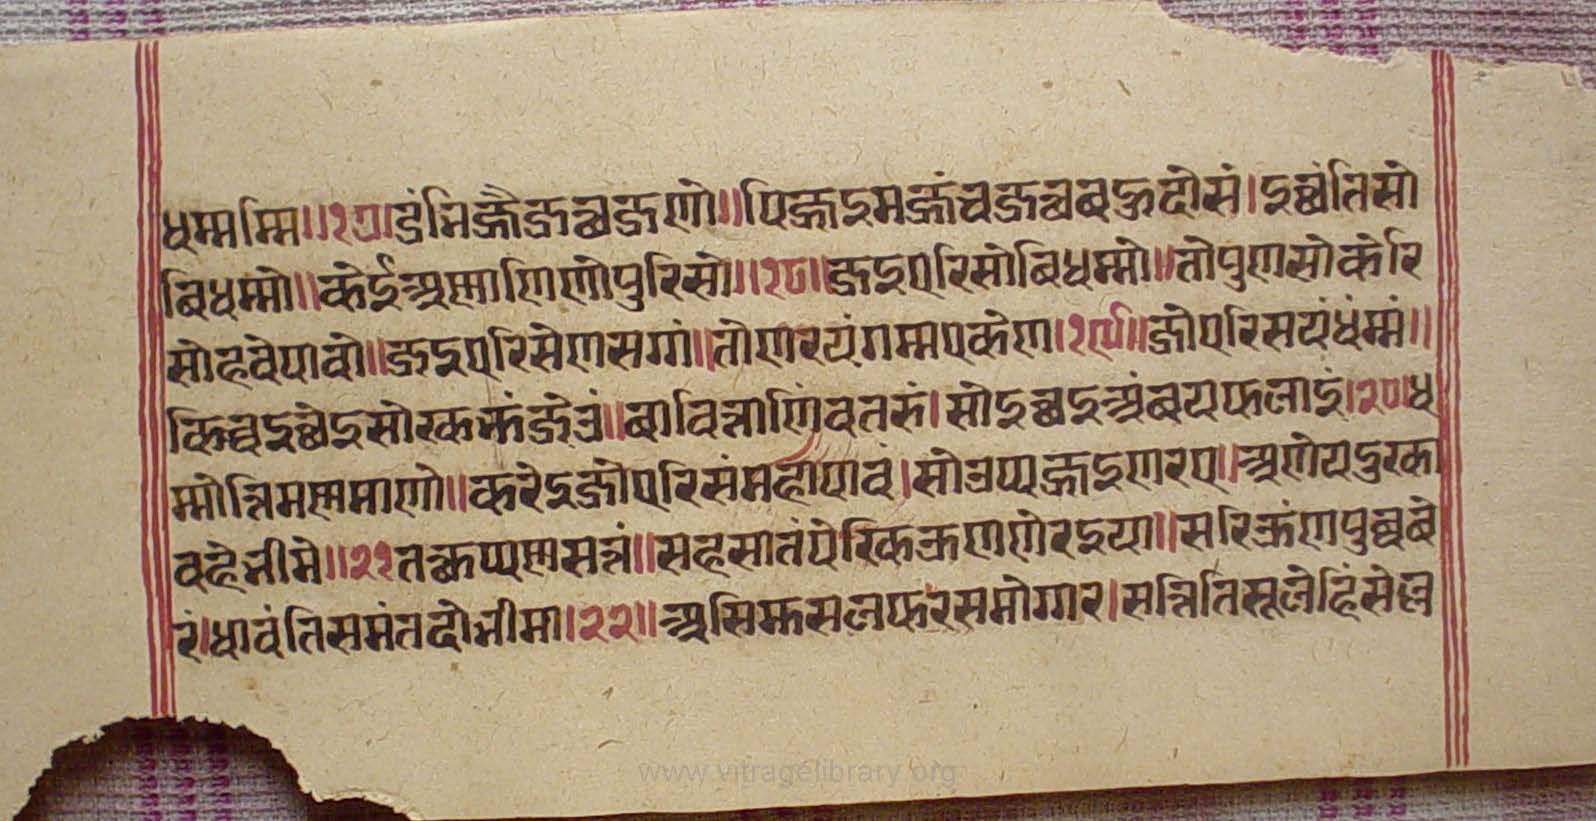 धम्मम्मि॥१७।डंभिज्जैजत्थजणो॥पिज्जइमज्जंचजत्थबहुदोसं।इच्छंतिसो
विधम्मो॥केईअण्णाणिणोपुरिसो॥१८॥जइएरिसोविधम्मो॥तोपुणसोकेरि
सोहवेपावो॥जइएरिसेणसग्गं॥तोणरयंगम्मएकेण।१९॥जोएरिसयंधंम्मं॥
किच्चइच्छेइसोरकभुंजेउं॥वावित्ताणिंवतरुं।सोइच्छइअंबयफलाइं।२०।ध
म्मोत्तिमण्णमाणो॥करेइजोएरिसंमहापावं।सोउप्पज्जइणरए॥अणेयदुरका
वहेभीमे॥२१तत्थुप्पण्णसत्तं॥सहसातंपेरिकऊणणेरइया॥सरिऊंणपुव्ववे
रं।धावंतिसमंतदोभीमा।२२॥असिफसलफरसमोग्गर।सत्तितिसूलेहिंसेल्ल
www.vitragelibrary.org